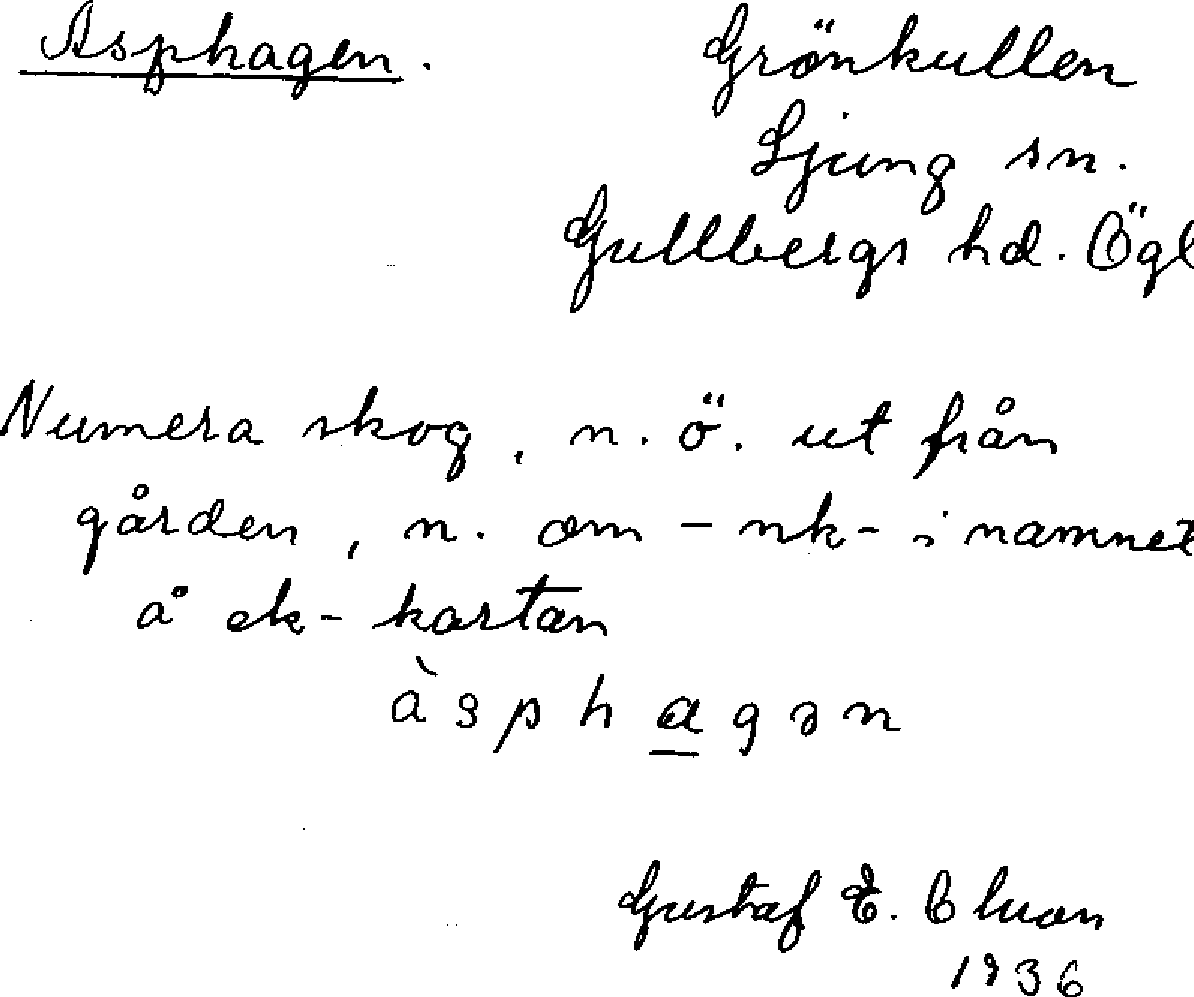 Asphagen. Grönkullen
Ljung sn.
Gullbergs hd. Ögl
Numera skog, n.ö. ut från
gården, n. om -nk- i namnet
å ek-kartan
àsphagən
Gustaf E.
1936